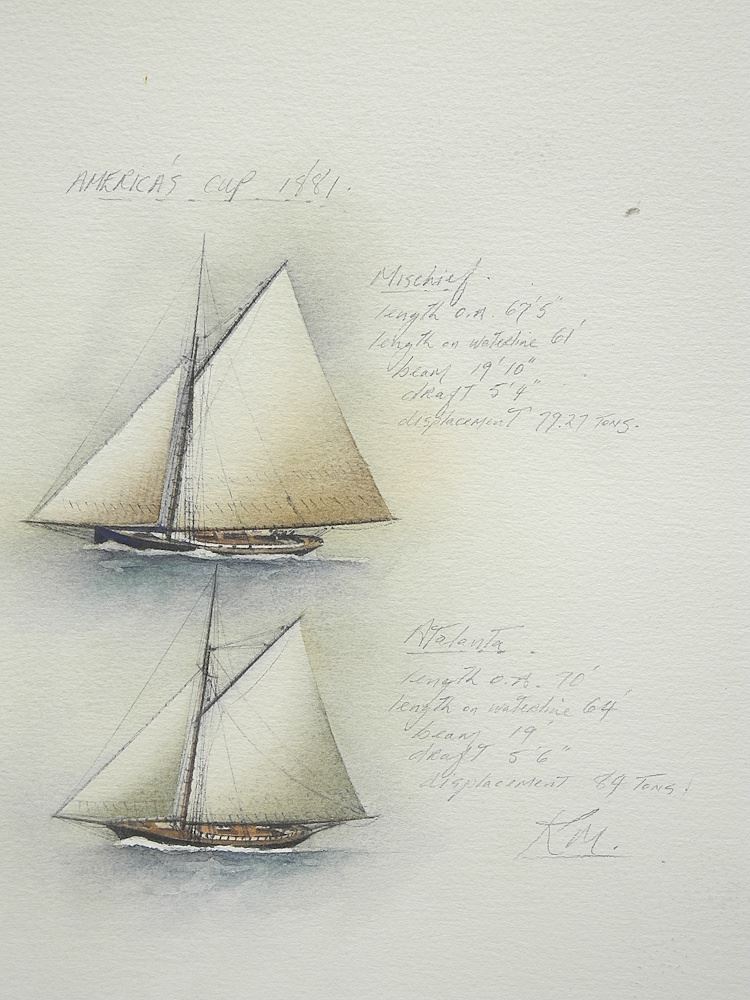 AMERICA'S CUP 1881.
Mischief.
length o.a. 67'5"
length on waterline 61'
beam 19'10"
draft 5'4"
displacement 79.27 Tons.
Atalanta.
length o.a. 70'
length on waterline 64'
beam 19'
draft 5'6"
displacement 84 Tons!
K.M.